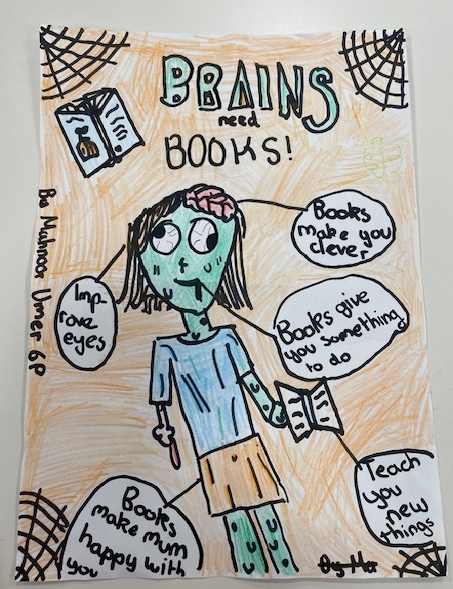 BRAINS
need
BOOKS!
Books
make you
clever
By Mahnoor Umer 6P
Imp-
rove
eyes
Books give
you something
to do
Teach
you
new
things
Books
make mum
happy with
you